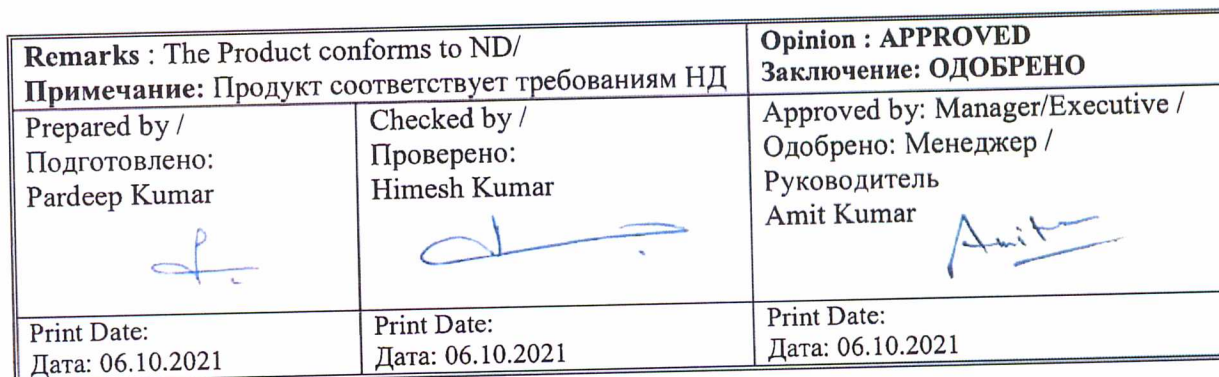 Remarks : The Product conforms to ND/
Примечание: Продукт соответствует требованиям НД
Opinion : APPROVED
Заключение: ОДОБРЕНО
Prepared by /
Подготовлено:
Pardeep Kumar
Checked by /
Проверено:
Himesh Kumar
Approved by: Manager/Executive /
Одобрено: Менеджер /
Руководитель
Amit Kumar
Print Date:
Дата: 06.10.2021
Print Date:
Дата: 06.10.2021
Print Date:
Дата: 06.10.2021